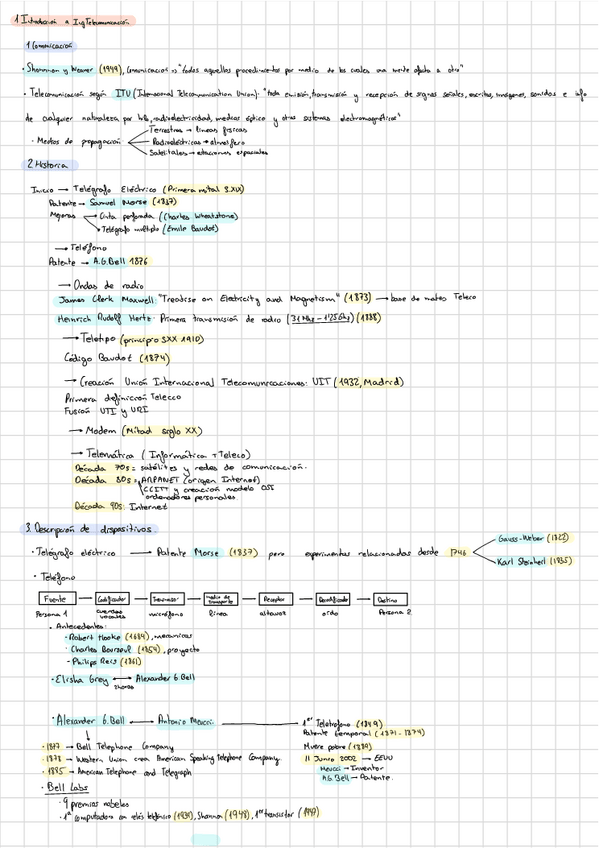 1 Introducción a Ing Telecomunicación
1 Comunicación
· Shannon y Weaver (1949), Comunicación => "todos aquellos procedimientos por medio de los cuales una mente afecta a otra"
· Telecomunicación según ITU (International Telecommunication Union): "toda emisión, transmisión y recepción de signos señales, escritos, imágenes, sonidos e info
de cualquier naturaleza por hilo, radioelectricidad, medios óptico y otros sistemas electromagnéticos"
· Medios de propagación
Terrestres → líneas físicas
Radioeléctricas → atmósfera
Satelitales → estaciones espaciales
2 Historia
Inicio → Telégrafo Eléctrico (Primera mitad S.XIX)
Patente → Samuel Morse (1837)
Mejoras
Cinta perforada (Charles Wheatstone)
Telégrafo múltiple (Émile Baudot)
→ Teléfono
Patente → A.G.Bell 1876
→ Ondas de radio
James Clerk Maxwell: "Treatise on Electricity and Magnetism" (1873) → base de mates Teleco
Heinrich Rudolf Hertz: Primera transmisión de radio (31Mhz - 1'25Ghz) (1888)
→ Teletipo (principio SXX 1910)
Código Baudot (1874)
→ Creación Unión Internacional Telecomunicaciones: UIT (1932, Madrid)
Primera definición Telecco
Fusión UTI y URI
→ Modem (Mitad siglo XX)
→ Telemática (Informática + Teleco)
Década 70s = satélites y redes de comunicación.
Década 80s = ARPANET (origen Internet)
CCITT y creación modelo OSI
ordenadores personales
Década 90s: Internet
3. Descripción de dispositivos
· Telégrafo eléctrico → Patente Morse (1837) pero experimentos relacionados desde 1746
Gauss-Weber (1833)
Karl Steinheil (1835)
· Teléfono
Fuente — Codificador — Transmisor — medio de transporte — Receptor — Decodificador — Destino
Persona 1 cuerdas vocales micrófono línea altavoz oído Persona 2
· Antecedentes:
· Robert Hooke (1684), mecánicas
· Charles Bourseul (1854), proyecto
- Philips Reis (1861)
· Elisha Grey ↔ Alexander G.Bell
2horas
· Alexander G.Bell ↔ Antonio Meucci
1er Teletrofono (1849)
Patente temporal (1871-1874)
Muere pobre (1889)
11 Junio 2002 → EEUU
Meucci → Inventor
A.G.Bell → Patente.
· 1877 → Bell Telephone Company
· 1878 → Western Union crea American Speaking Telephone Company
· 1885 → American Telephone and Telegraph
· Bell Labs
· 9 premios nobeles
· 1ª computadora con relés telefónico (1939), Shannon (1948), 1er transistor (1947)